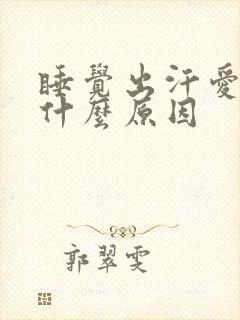 睡覺出汗愛
什麼原因
郭翠雯